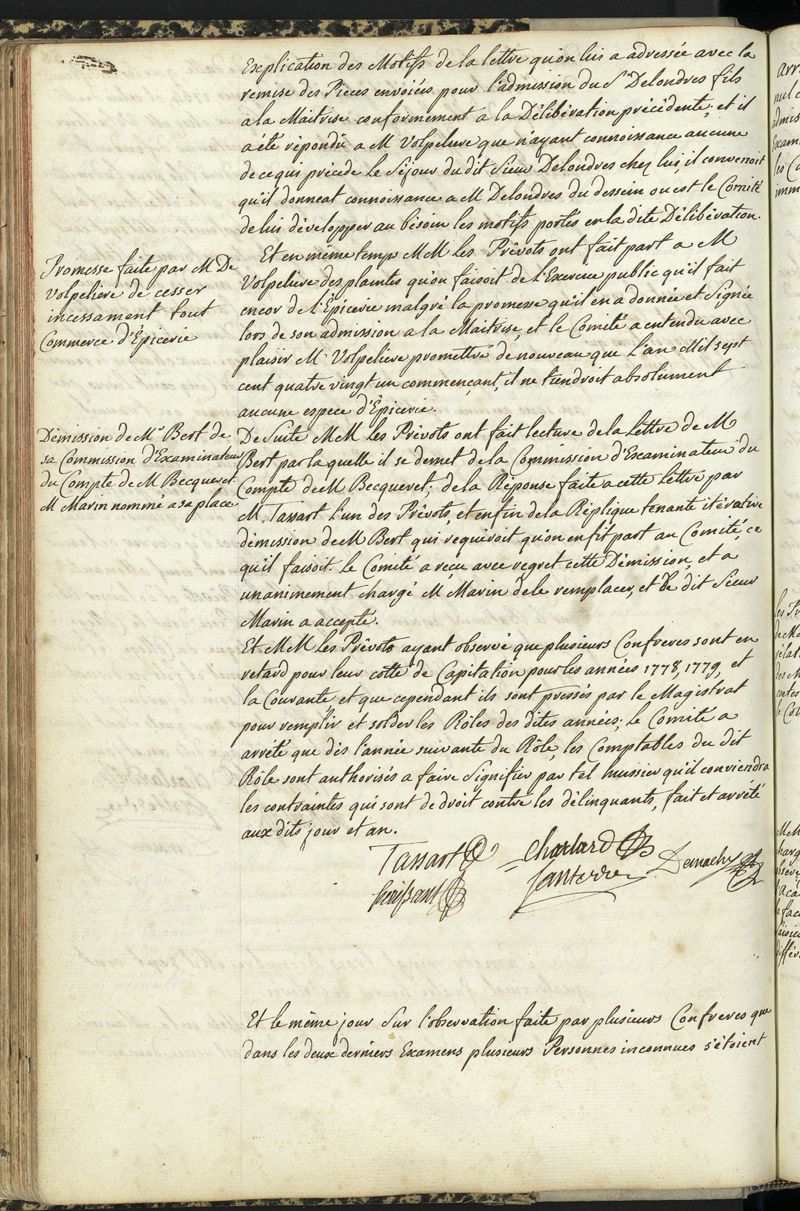 Explication des Motifs de la lettre qu'on lui a adressée avec la
remise des Pieces envoiées pour l'admission du Sr Delondres fils
a la Maitrise conformement a la Délibération précédente, et il
a été répondu a M Volpeliere que n'ayant connoissance aucune
de ce qui précede le Séjour du dit Sieur Delondres chez lui, il convenoit
qu'il donneat connoissance a M Delondres du dessein ou est le Comité
de lui développer au bésoin les motifs portés en la dite Délibération.
Et en même temps MM les Prévots ont fait part a M
Volpeliere des plaintes qu'on faisoit de l'Exercice public qu'il fait
encor de l'Épicerie malgré la promesse qu'il en a donnée et Signée
lors de son admission a la Maitrise, et le Comité a entendu avec
plaisir M. Volpeliere promettre de nouveau que l'an Mil sept
cent quatre vingt un commençant, il ne tiendroit absolument
aucune espece d'Épicerie.
Promesse faite par M De
Volpeliere de cesser
incessament tout
Commerce d'Épicerie
De Suite MM les Prévots ont fait lecture de la Lettre de M
Bert par la quelle il se demet de la Commission d'Examinateur du
Compte de M Becqueret; de la Réponse faite a cette lettre par
M. Tassart l'un des Prévots, et enfin de la Réplique tenante itérative
démission de M Bert qui requiroit qu'on en fit part au Comité, ce
qu'il faisoit. Le Comité a reçu avec regret cette Démission, et a
unanimement chargé M Marin de le remplacer, et le dit Sieur
Marin a accepté.
Démission de Mr Bert de
sa Commission d'Examinateur
du Compte de M Becqueret
M Marin nommé a sa place
Et MM les Prévots ayant observé que plusieurs Confreres sont en
retard pour leur cotte de Capitation pour les années 1778, 1779, et
la Courante et que cependant ils sont pressés par le Magistrat
pour remplir et solder les Rôles des dites années; le Comité a
arrêté que dès l'année suivante du Rôle, les Comptables du dit
Rôle sont authorisés a faire Signifier par tel huissier qu'il conviendra
les contraintes qui sont de droit contre les délinquants, fait et arrété
aux dits jour et an.
Tassart Charlard Demachy
Santerre
Et le même jour Sur l'observation faite par plusieurs Confreres que
dans les deux derniers Examens plusieurs Personnes inconnues s'étoient